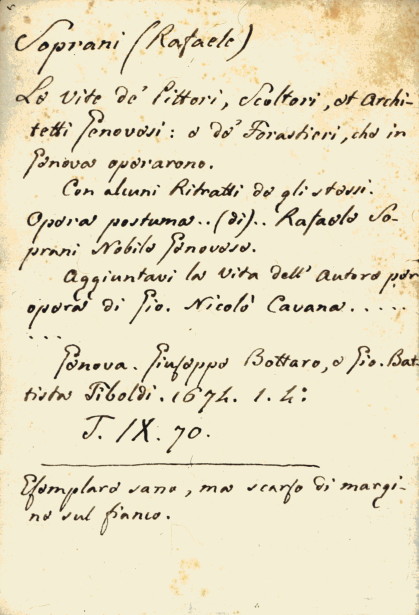 Soprani (Rafaele)
Le Vite de' Pittori, Scoltori, et Archi-
tetti Genovesi: e de' Forastieri, che in
Genova operarono.
Con alcuni Ritratti de gli stessi.
Opera postuma..(di).. Rafaele So-
prani Nobile Genovese.
Aggiuntavi la Vita dell' Autore per
opera di Gio. Nicolò Cavana.....
...
Genova. Giuseppe Bottaro, e Gio. Bat-
tista Tiboldi. 1674. 1. 4:
J. IX. 70.
Esemplare sano, ma scarso di margi-
ne sul fianco.